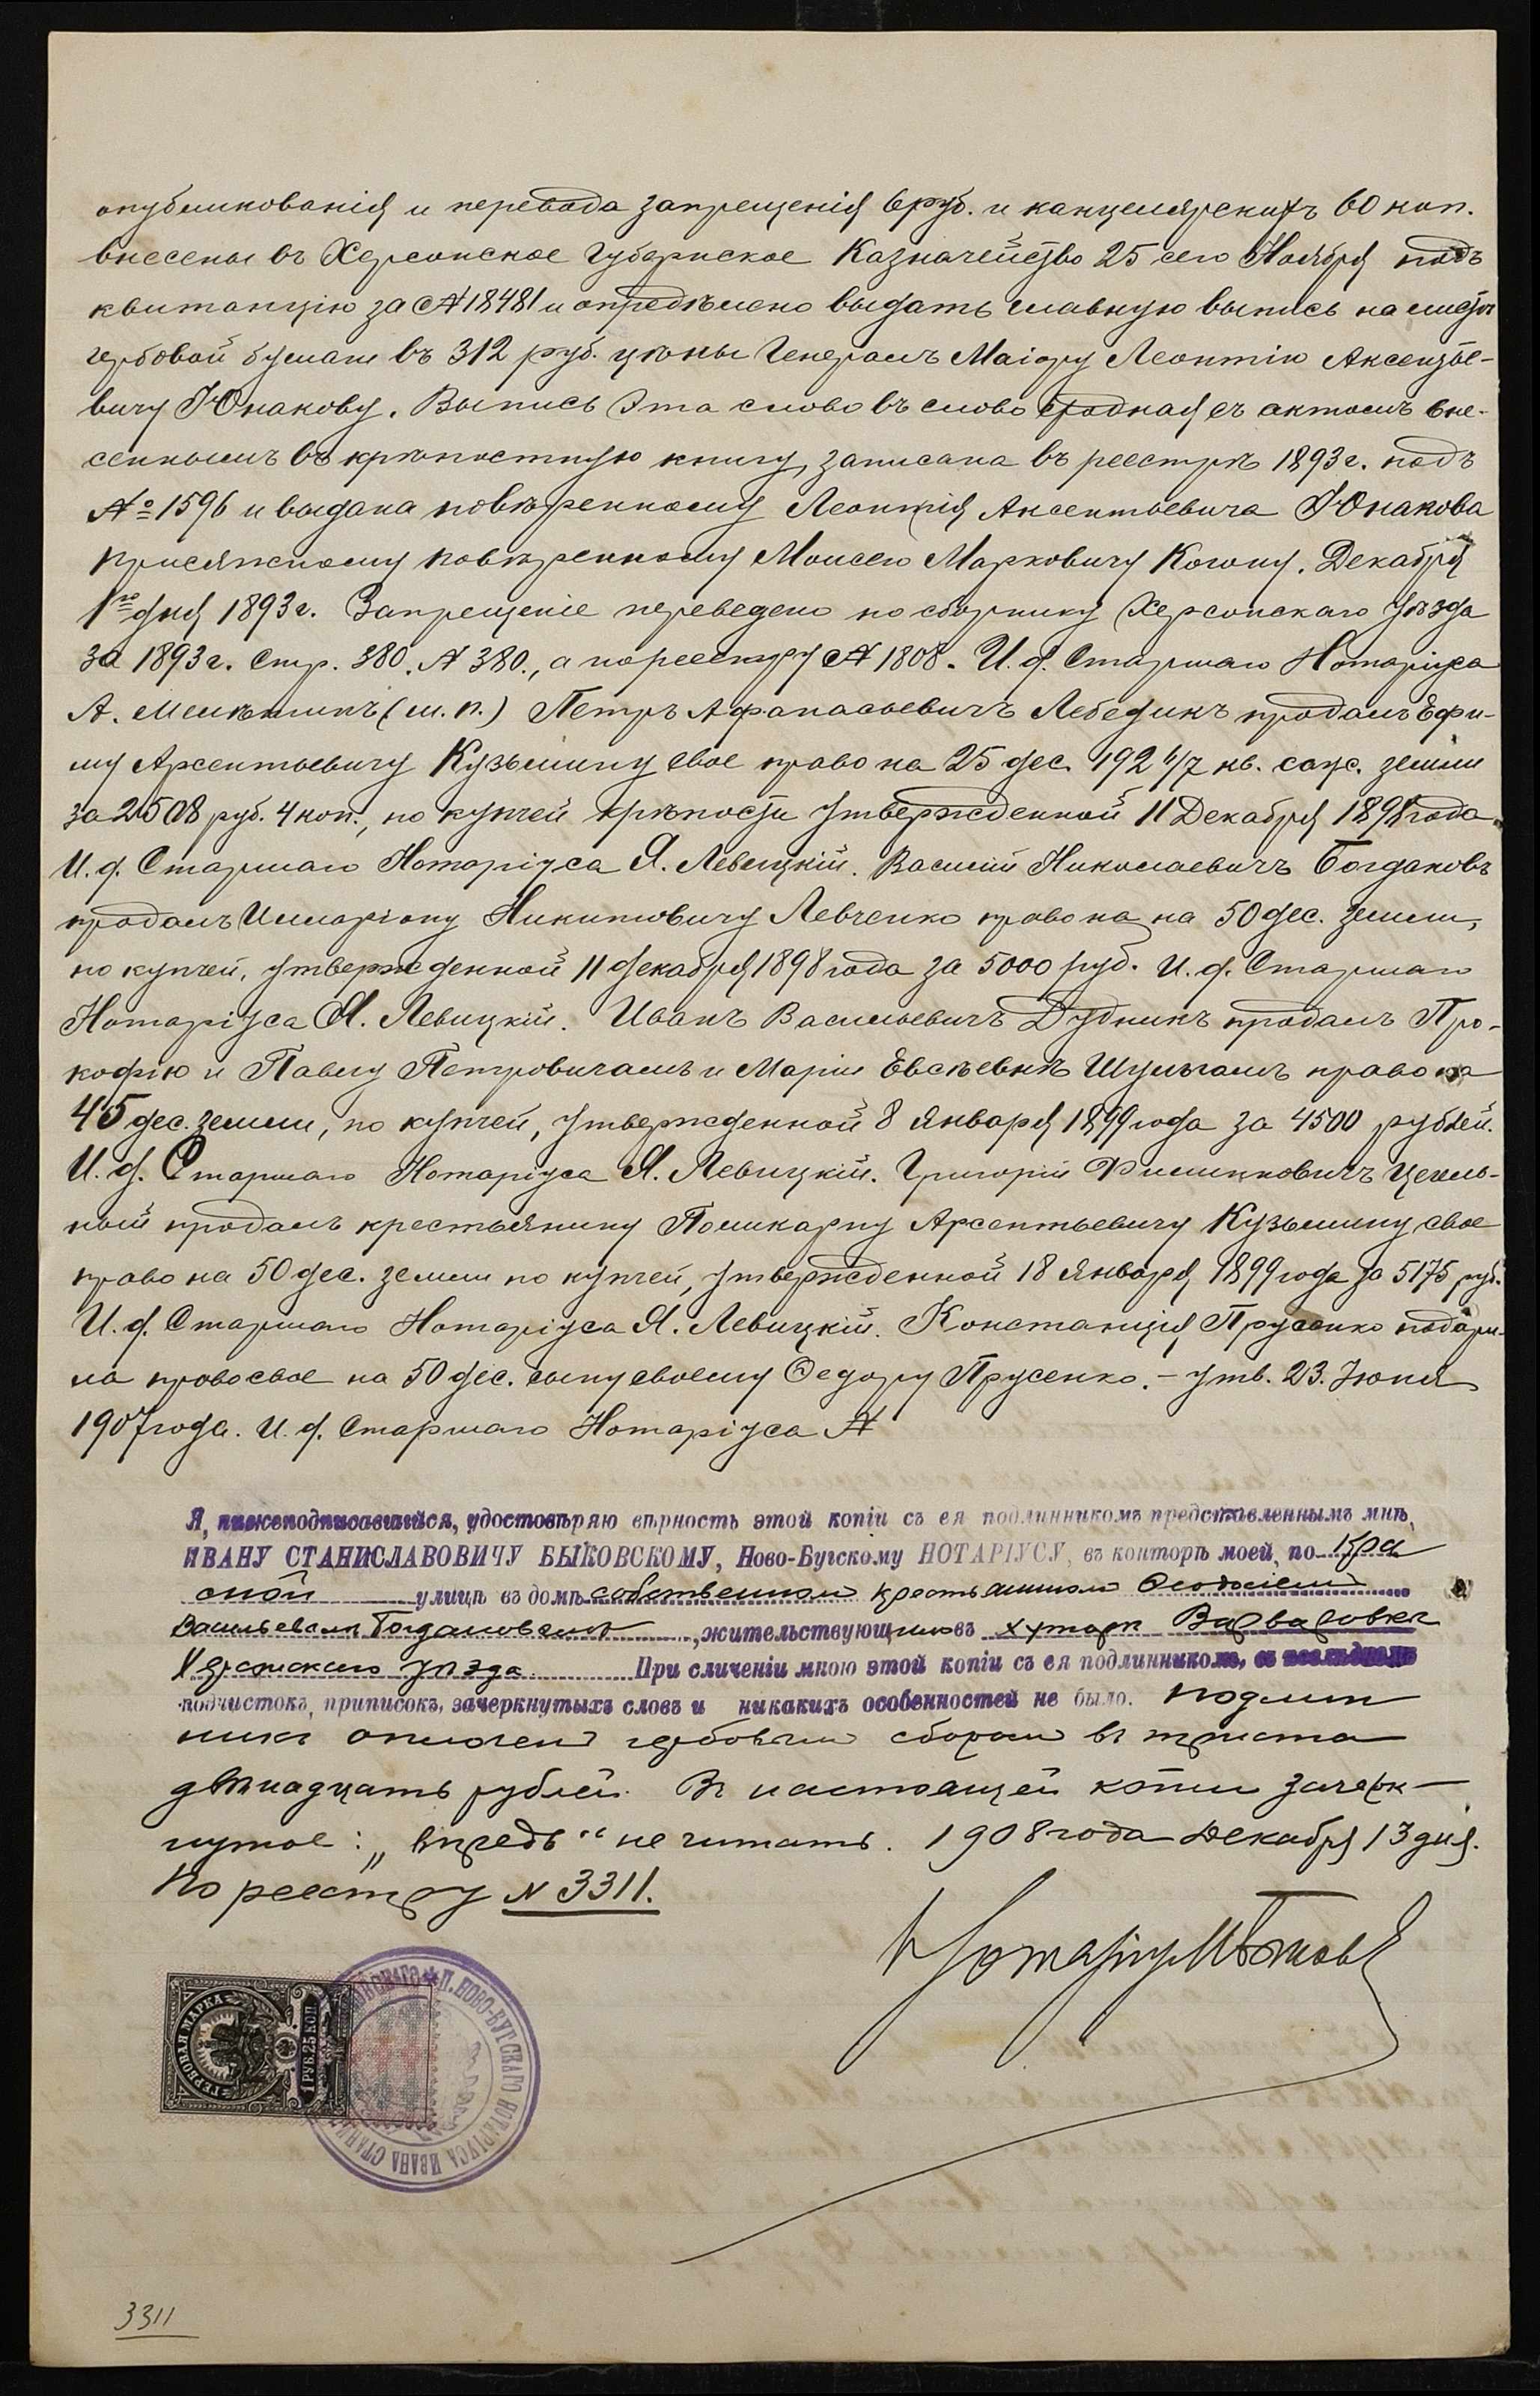 опубликованія и перевода запрещенія 6 руб. и канцелярскихъ 60 коп.
внесены въ Херсонское Губернское Казначейство 25 сего Ноября подъ
квитанцію за № 18481 и опредѣлено выдать главную выпись на листѣ
гербовой бумаги въ 312 руб. цѣны Генералъ Маіору Леонтію Аксентье-
вичу Юнакову. Выпись эта слово въ слово сходная съ актомъ вне-
сеннымъ въ крѣпостную книгу, записана въ реестрѣ 1893 г. подъ
№ 1596 и выдана повѣренному Леонтія Аксентьевича Юнакова
присяжному повѣренному Моисею Марковичу Когону. Декабря
1го дня 1893 г. Запрещеніе переведено по сборнику Херсонскаго уѣзда
за 1893 г. Стр. 380. № 380., а по реестру № 1808. И. д. Старшаго Нотаріуса
А. (м. п.) Петръ Афанасьевичъ Лебедикъ продалъ Ефи-
му Арсентьевичу Кузьмину свое право на 25 дес. 192 6/7 кв. саж. земли
за 2508 руб. 4 коп., по купчей крѣпости утвержденной 11 Декабря 1898 года.
И. д. Старшаго Нотаріуса Я. Левицкій. Василій Николаевичъ Богдановъ
продалъ Иларіону Никитовичу Левченко право на на 50 дес. земли,
по купчей, утвержденной 11 декабря 1898 года за 5000 руб. И. д. Старшаго
Нотаріуса Я. Левицкій. Иванъ Васильевичъ Дудникъ продалъ Про-
кофію и Павлу Петровичамъ и Маріи Евсѣевнѣ Шульгамъ право на
45 дес. земли, по купчей, утвержденной 8 Января 1899 года за 4500 рублей.
И. д. Старшаго Нотаріуса Я. Левицкій. Григорій Филипповичъ Цегель-
ный продалъ крестьянину Поликарпу Арсентьевичу Кузьмину свое
право на 50 дес. земли по купчей, утвержденной 18 Января 1899 года за 5175 руб.
И. д. Старшаго Нотаріуса Я. Левицкій. Констанція Прусенко подари-
ла право свое на 50 дес. сыну своему Ѳедору Прусенко. – утв. 23. Іюня
1907 года. И. д. Старшаго Нотаріуса
Я, нижеподписавшійся, удостовѣряю вѣрность этой копіи съ ея подлинникомъ представленнымъ мнѣ,
ИВАНУ СТАНИСЛАВОВИЧУ БЫКОВСКОМУ, Ново-Бугскому НОТАРІУСУ, въ конторѣ моей, по Кра
сной улицѣ въ домѣ собственномъ крестьяниномъ Ѳеодосіемъ
Васильевымъ Богдановымъ, жительствующимъ въ хуторѣ Варваровкѣ
Херсонскаго уѣзда При сличеніи мною этой копіи съ ея подлинникомъ, въ послѣднемъ
подчистокъ, приписокъ, зачеркнутыхъ словъ и никакихъ особенностей не было. Подлин
никъ оплоченъ гербовымъ сборомъ въ триста
двѣнадцать рублей. Въ настоящей копіи зачерк-
нутое: „впредь" не читать. 1908 года Декабря 13 дня.
По реестру № 3311.
Нотаріусъ
ГЕРБОВАЯ МАРКА
1 РУБ. 25 КОП.
Л. НОВО-БУГСКАГО НОТАРІУСА ИВАНА СТАНИ
3311